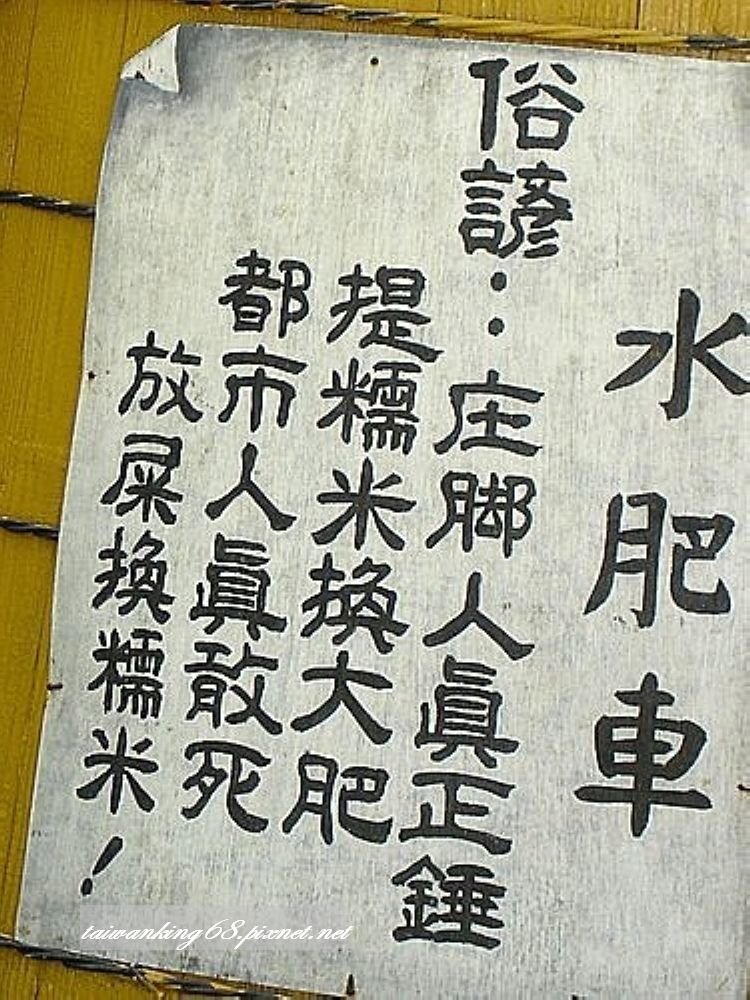 水肥車
俗諺：庄脚人眞正錘
提糯米換大肥
都市人眞敢死
放屎換糯米！
taiwanking68.pixnet.net